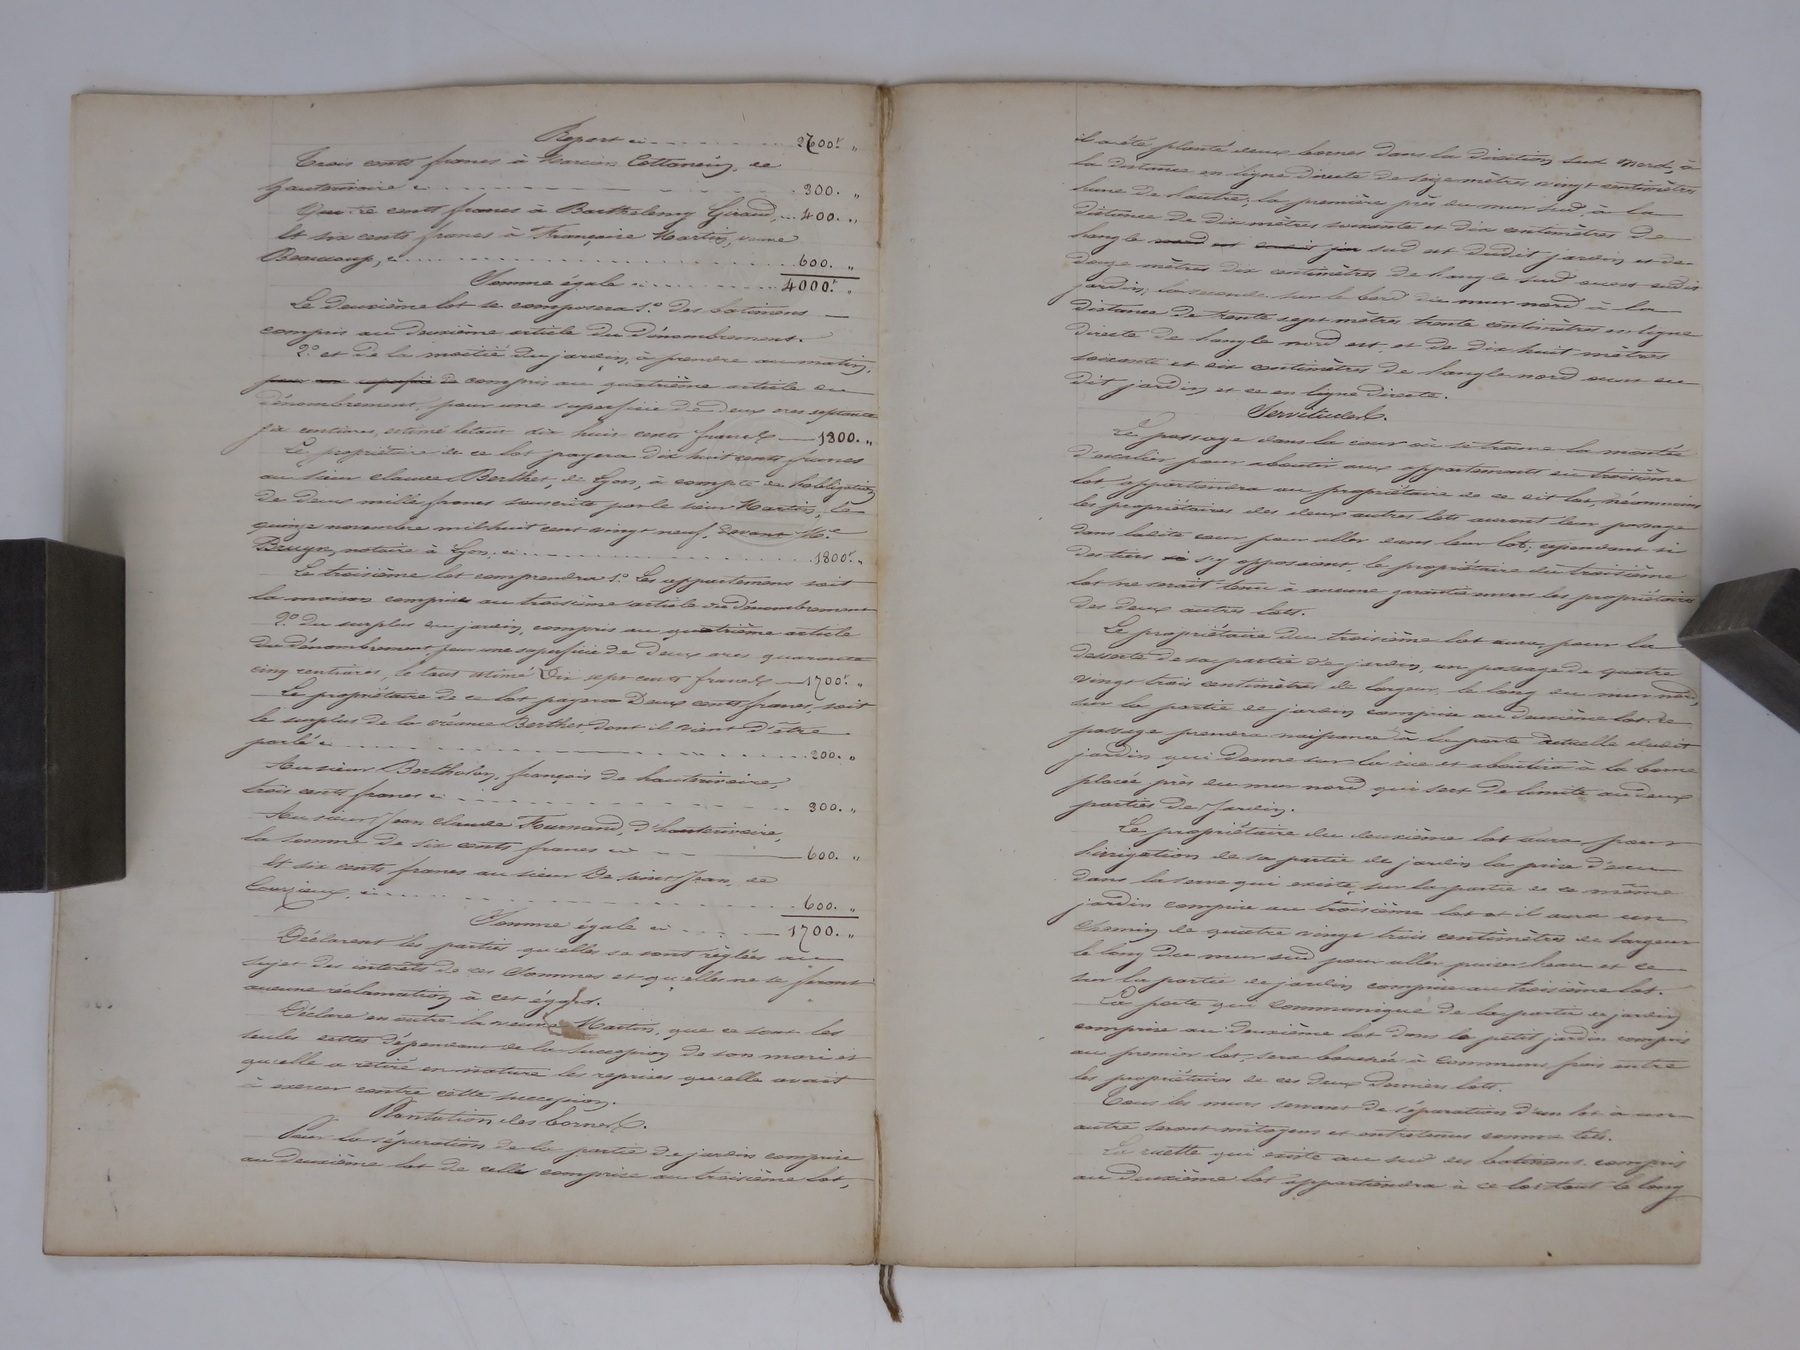 Report ci 2700.f "
Trois cents francs à Cottancin, de
hauterivoire ci 300. "
Quatre cents francs à Barthelemy Giraud, 400. "
Et six cents francs à Françoise Martin, veuve
Beaucoup, ci 600. "
Somme égale ci 4000.f "
Le deuxième lot se composera 1.o des batimens
compris au deuxième article du dénombrement.
2.o et de la moitié du jardin, à prendre au matin,
pour une superficie de compris au quatrième article du
dénombrement, pour une superficie de deux ares septante
six centiares, estimé letout dix huit cents francs 1800. "
Le propriétaire de ce lot payera dix huit cents francs
au sieur claude Berthet, de Lyon, à compte de l'obligation
de deux mille francs souscrite par le sieur Martin, Le
quinze novembre mil huit cent vingt neuf, devant M.e
notaire à Lyon, ci 1800.f "
Le troisième lot comprendra 1.o Les appartemens soit
la maison comprise au troisième article du dénombrement
2.o du surplus du jardin, compris au quatrième article
du dénombrement, pour une superficie de deux ares quarante
cinq centiares, le tout estimé Dix sept cents francs 1700.f "
Le propriétaire de ce lot payera Deux cents francs, soit
le surplus de la créance Berthet, dont il vient d'être
parlé ci 200. "
Au sieur Bertholon, françois de hauterivoire,
trois cents francs ci 300. "
Au sieur Jean claude Fournand, d'hauterivoire,
la somme de six cents francs ci 600. "
Et six cents francs au sieur De saint Jean, de
Courzieux, ci 600. "
Somme égale ci 1700. "
Déclarent les parties qu'elles se sont réglées au
sujet des intérêts de ces sommes et qu'elles ne se feront
aucune réclamation à cet égard.
Déclare en outre la veuve Martin, que ce sont les
seules dettes dépendant de la succession de son mari et
qu'elle a retiré en nature les reprises qu'elle avait
à exercer contre cette succession.
Plantation des bornes.
Pour la séparation de la partie de jardin comprise
au deuxième lot de celle comprise au troisième lot,
il a été planté deux bornes dans la direction sud nord, à
la distance en ligne directe de seize mètres vingt centimètres
l'une de l'autre, la première près du mur sud, à la
distance de dix mètres soixante et dix centimètres de
l'angle sud est dudit jardin et de
douze mètres dix centimètres de l'angle sud ouest dudit
jardin, la seconde sur le bord du mur nord à la
distance de trente sept mètres trente centimètres en ligne
directe de l'angle nord est, et de dix huit mètres
soixante et dix centimètres de l'angle nord ouest du
dit jardin et ce en ligne directe.
Servitudes.
Le passage dans la cour où se trouve la montée
d'escalier pour aboutir aux appartements du troisième
lot, appartiendra au propriétaire de ce dit lot, néanmoins
les propriétaires des deux autres lots auront leur passage
dans ladite cour pour aller dans leur lot; cependant si
des tiers s'y opposaient, le propriétaire du troisième
lot ne serait tenu à aucune garantie envers les propriétaires
des deux autres lots.
Le propriétaire du troisième lot aura, pour la
desserte de sa partie de jardin, un passage de quatre
vingt trois centimètres de largeur, le long du mur nord,
sur la partie de jardin comprise au deuxième lot. Ce
passage prendra naissance à la porte actuelle dudit
jardin qui donne sur la rue et aboutira à la borne
placée près du mur nord qui sert de limite aux deux
parties de Jardin.
Le propriétaire du deuxième lot aura pour
l'irrigation de sa partie de jardin la prise d'eau
dans la serve qui existe sur la partie de ce même
jardin comprise au troisième lot et il aura un
chemin de quatre vingt trois centimètres de largeur
le long du mur sud pour aller puiser l'eau et ce
sur la partie de jardin comprise au troisième lot.
La porte qui communique de la partie de jardin
comprise au deuxième lot dans le petit jardin compris
au premier lot, sera bouchée à communs frais entre
les propriétaires de ces deux derniers lots.
Tous les murs servant de séparation d'un lot à un
autre seront mitoyens et entretenus comme tels.
La ruette qui existe au sud des batimens compris
au deuxième lot appartiendra à ce lot tout le long